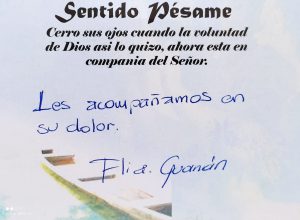 Sentido Pésame
Cerro sus ojos cuando la voluntad
de Dios asi lo quizo, ahora esta en
compania del Señor.
Les acompañamos en
su dolor.
Flia. Guanán